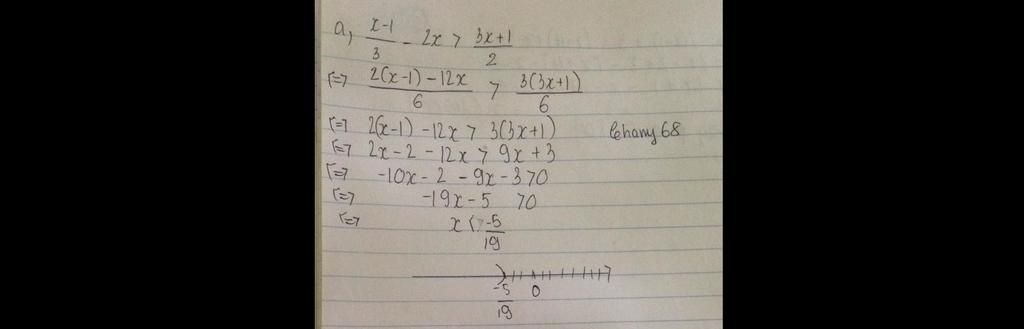 a, (x-1)/3 - 2x > (3x+1)/2
<=> (2(x-1) - 12x)/6 > 3(3x+1)/6
<=> 2(x-1) - 12x > 3(3x+1) Chany68
<=> 2x - 2 - 12x > 9x + 3
<=> -10x - 2 - 9x - 3 > 0
<=> -19x - 5 > 0
<=> x < -5/19
-5/19 0